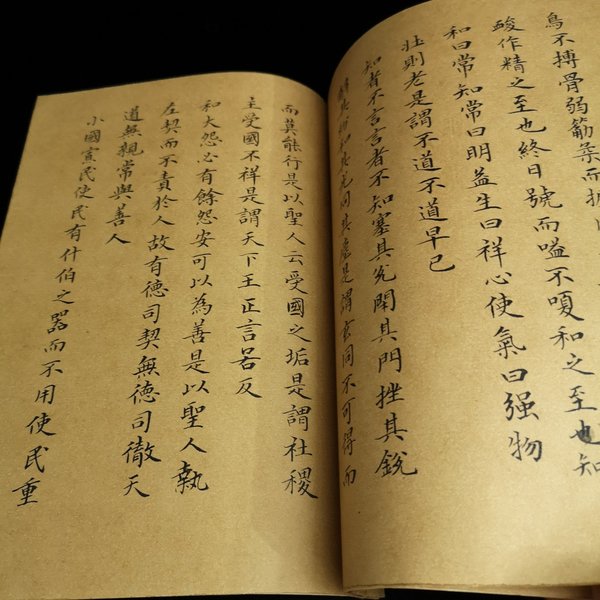 鳥不搏骨弱筋柔而
酸作精之至也終日號而嗌不嗄和之至也知
和曰常知常曰明益生曰祥心使氣曰强物
壯則老是謂不道不道早已
知者不言言者不知塞其兌閉其門挫其銳
和其光同其塵是謂玄同不可得而
而莫能行是以聖人云受國之垢是謂社稷
主受國不祥是謂天下王正言若反
和大怨必有餘怨安可以為善是以聖人執
左契而不責於人故有德司契無德司徹天
道無親常與善人
小國寡民使民有什伯之器而不用使民重